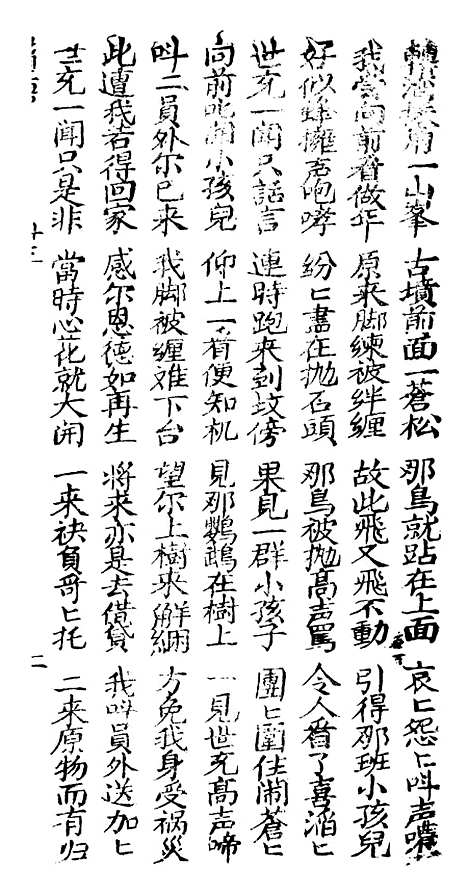 一山峯 古墳前面一蒼松 那鳥就跕在上面 哀匕怨匕叫声嘈
我當向前看做乍 原来脚練被絆纏 故此飛又飛不動 引得那班小孩兒
好似蜂擁声咆哮 紛匕盡在抛石頭 那鳥被抛高声罵 令人看了喜滔匕
世充一闻只話言 連時跑来到坟傍 果見一群小孩子 團匕圍住闹蒼匕
向前叱開小孩兒 仰上一看便知机 見那鸚鵡在樹上 一見世充高声啼
叫二員外尔已来 我脚被缠难下台 望尔上樹来觧綑 方免我身受祸災
此遭我若得回家 感尔恩德如再生 將来亦是去借貸 我叫員外送加匕
世充一闻只是非 當時心花就大開 一来袂負哥匕托 二来原物而有归
十三 二